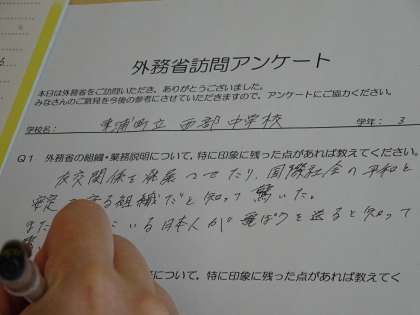 外務省訪問アンケート
本日は外務省をご訪問いただき、ありがとうございました。
みなさんのご意見を今後の参考にさせていただきますので、アンケートにご協力ください。
学校名: 東浦町立 西部中学校 学年: 3
Q1 外務省の組織・業務説明について、特に印象に残った点があれば教えてください。
友交関係を発展させたり、国際社会の平和と
安定 る組織だと知って驚いた。
また いる日本人が を送ると知って
について、特に印象に残った点があれば教えてく